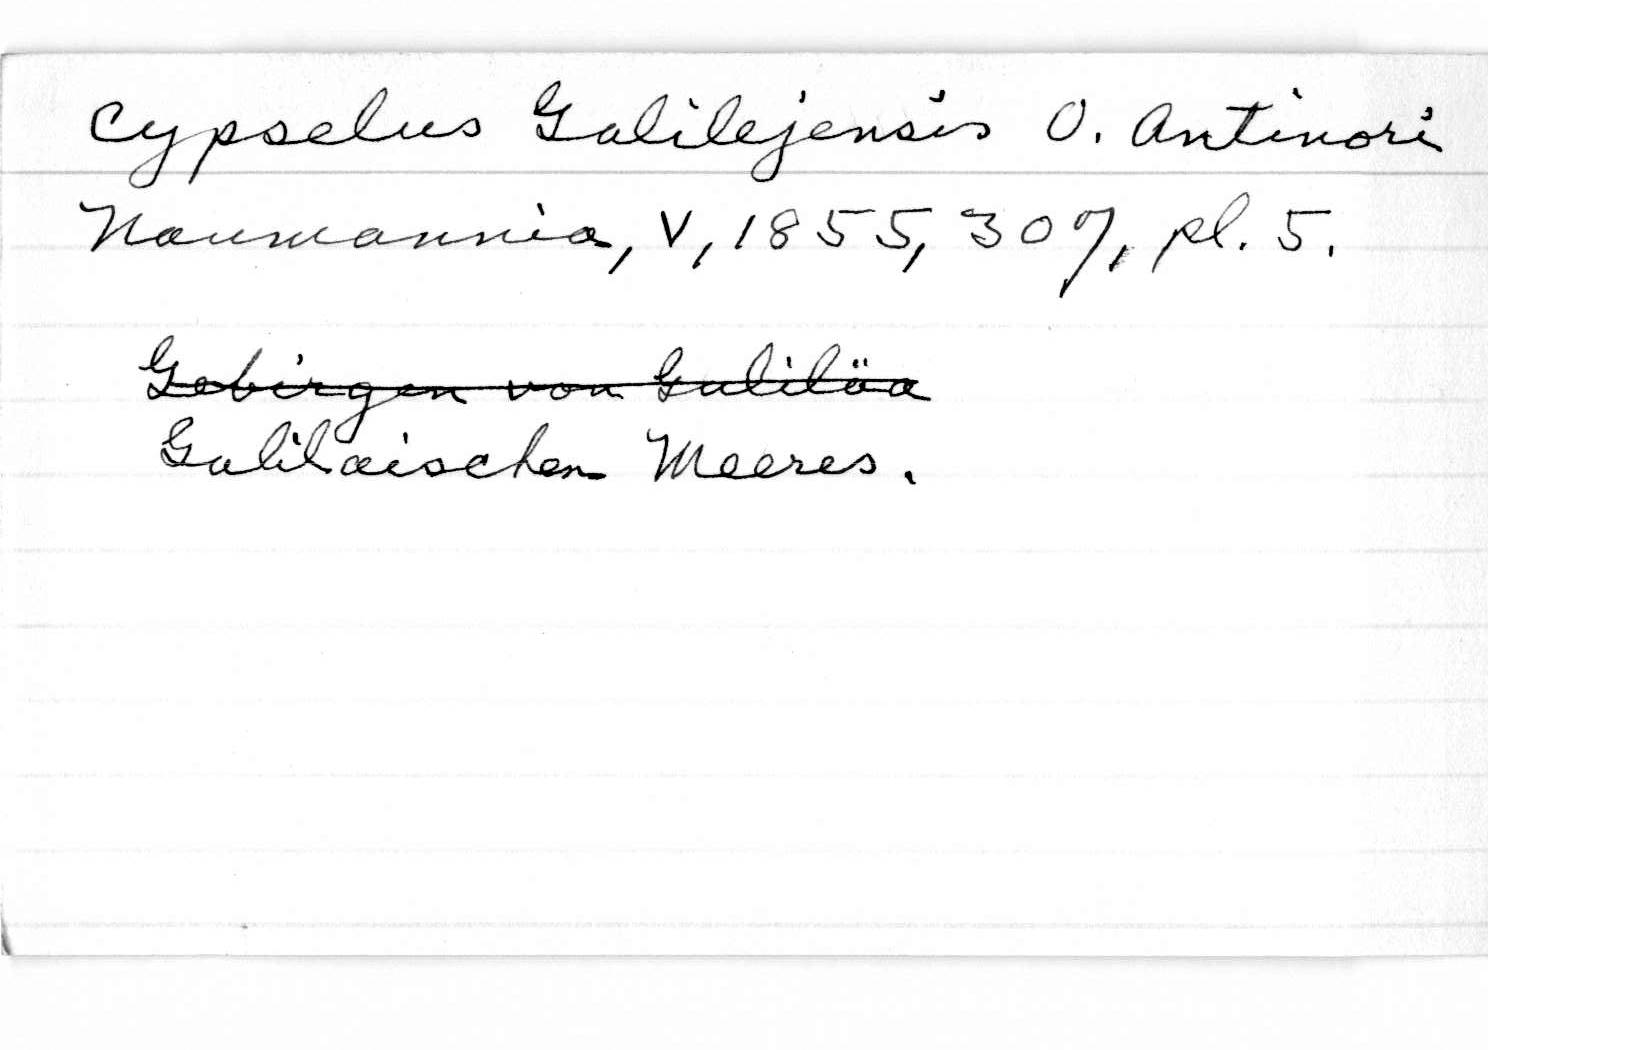 Cypselus Galilejensis O. Antinori
Naumannia, V, 1855, 307, pl. 5.
Gebirgen von Galiläa
Galilaischen Meeres.